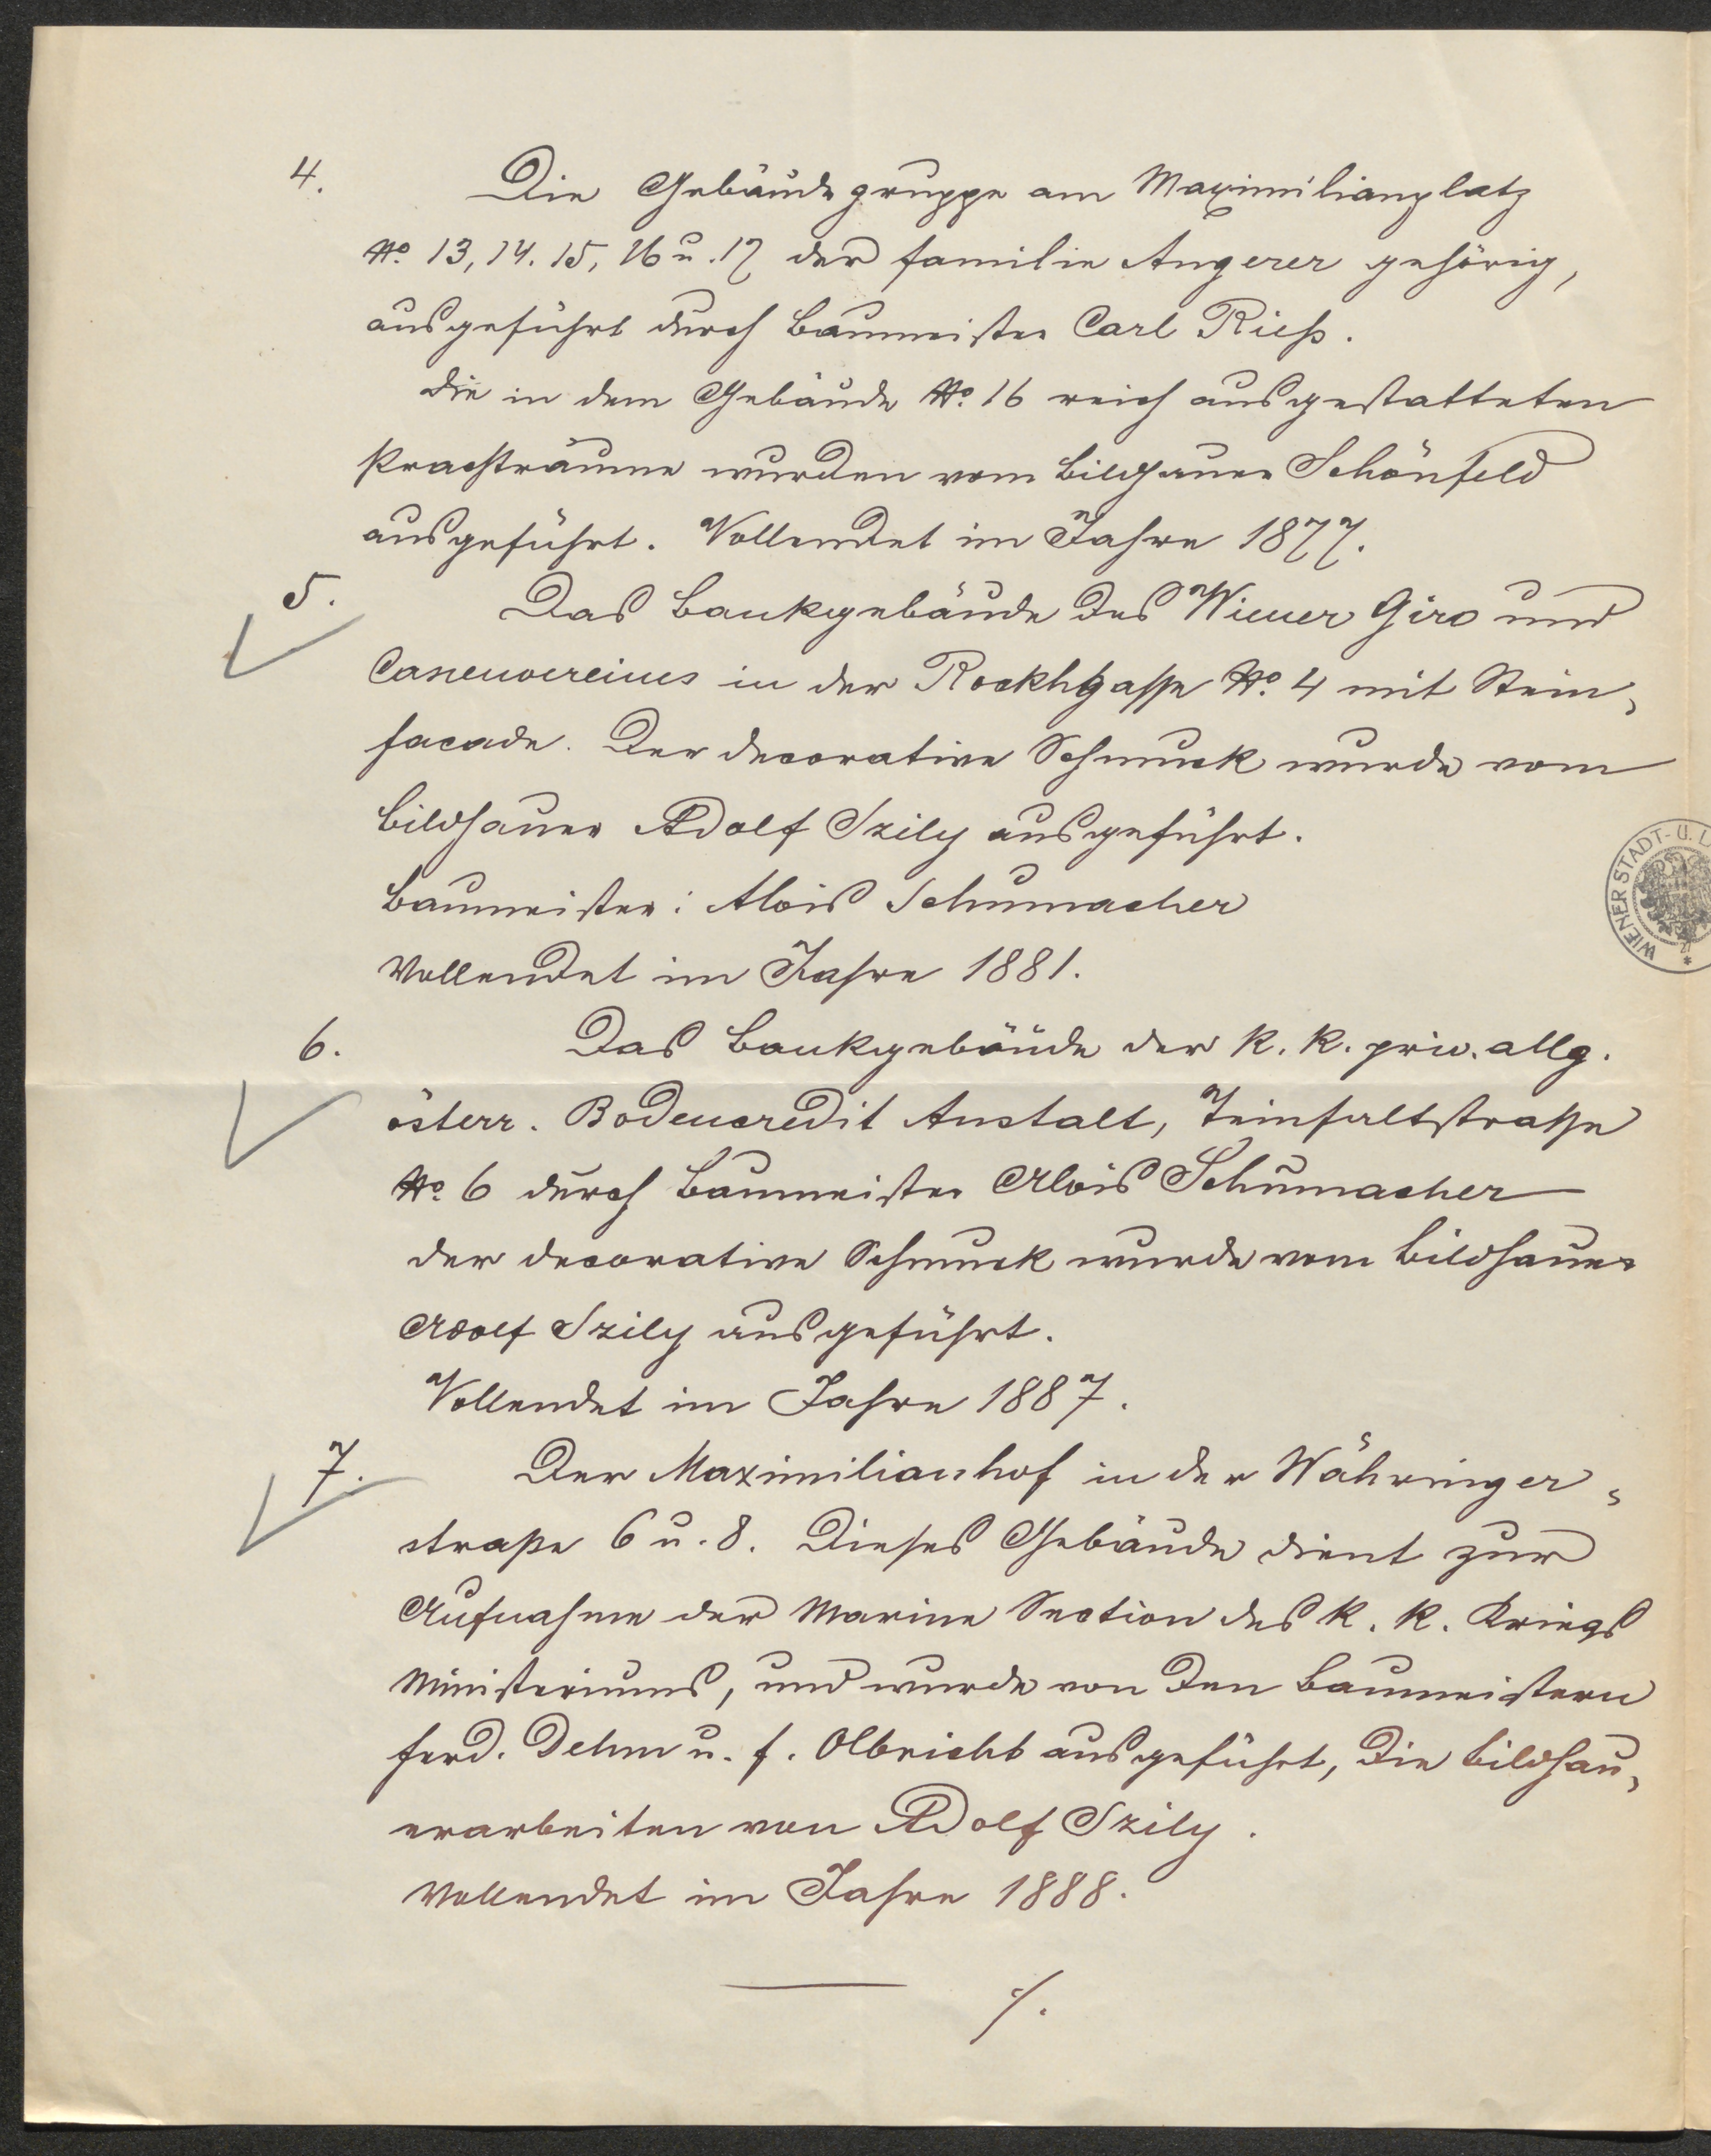 4.
Die Gebäudegruppe am Maximilianplatz
No. 13, 14. 15, 16 u. 17 der Familie Angerer gehörig,
ausgeführt durch Baumeister Carl Rieß.
Die in dem Gebäude No. 16 reich ausgestatteten
Prachträume wurden vom Bildhauer Schönfeld
ausgeführt. Vollendet im Jahre 1877.
5.
Das Bankgebäude des Wiener Giro und
Cassenvereines in der Rockhgasse No. 4 mit Stein-
facade. Der decorative Schmuck wurde vom
Bildhauer Adolf Szily ausgeführt.
Baumeister: Alois Schumacher
Vollendet im Jahre 1881.
6.
Das Bankgebäude der k. k. priv. allg.
österr. Bodencredit Anstalt, Teinfaltstraße
No. 6 durch Baumeister Alois Schumacher
der decorative Schmuck wurde vom Bildhauer
Adolf Szily ausgeführt.
Vollendet im Jahre 1887.
7.
Der Maximilianhof in der Währinger-
straße 6 u. 8. Dieses Gebäude dient zur
Aufnahme der Marine Section des k. k. Kriegs
Ministeriums, und wurde von den Baumeistern
Ferd. Dehm u. F. Olbricht ausgeführt, die Bildhau-
erarbeiten von Adolf Szily.
Vollendet im Jahre 1888.
./.
WIENER STADT- U. L